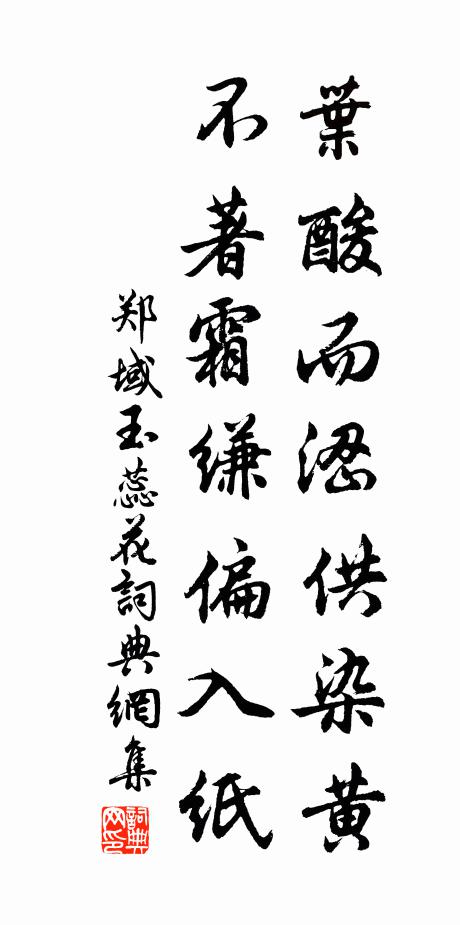 葉酸而澀供染黄
不著霜縑偏入紙
郑域玉蕊花詞典網集
詞典網印